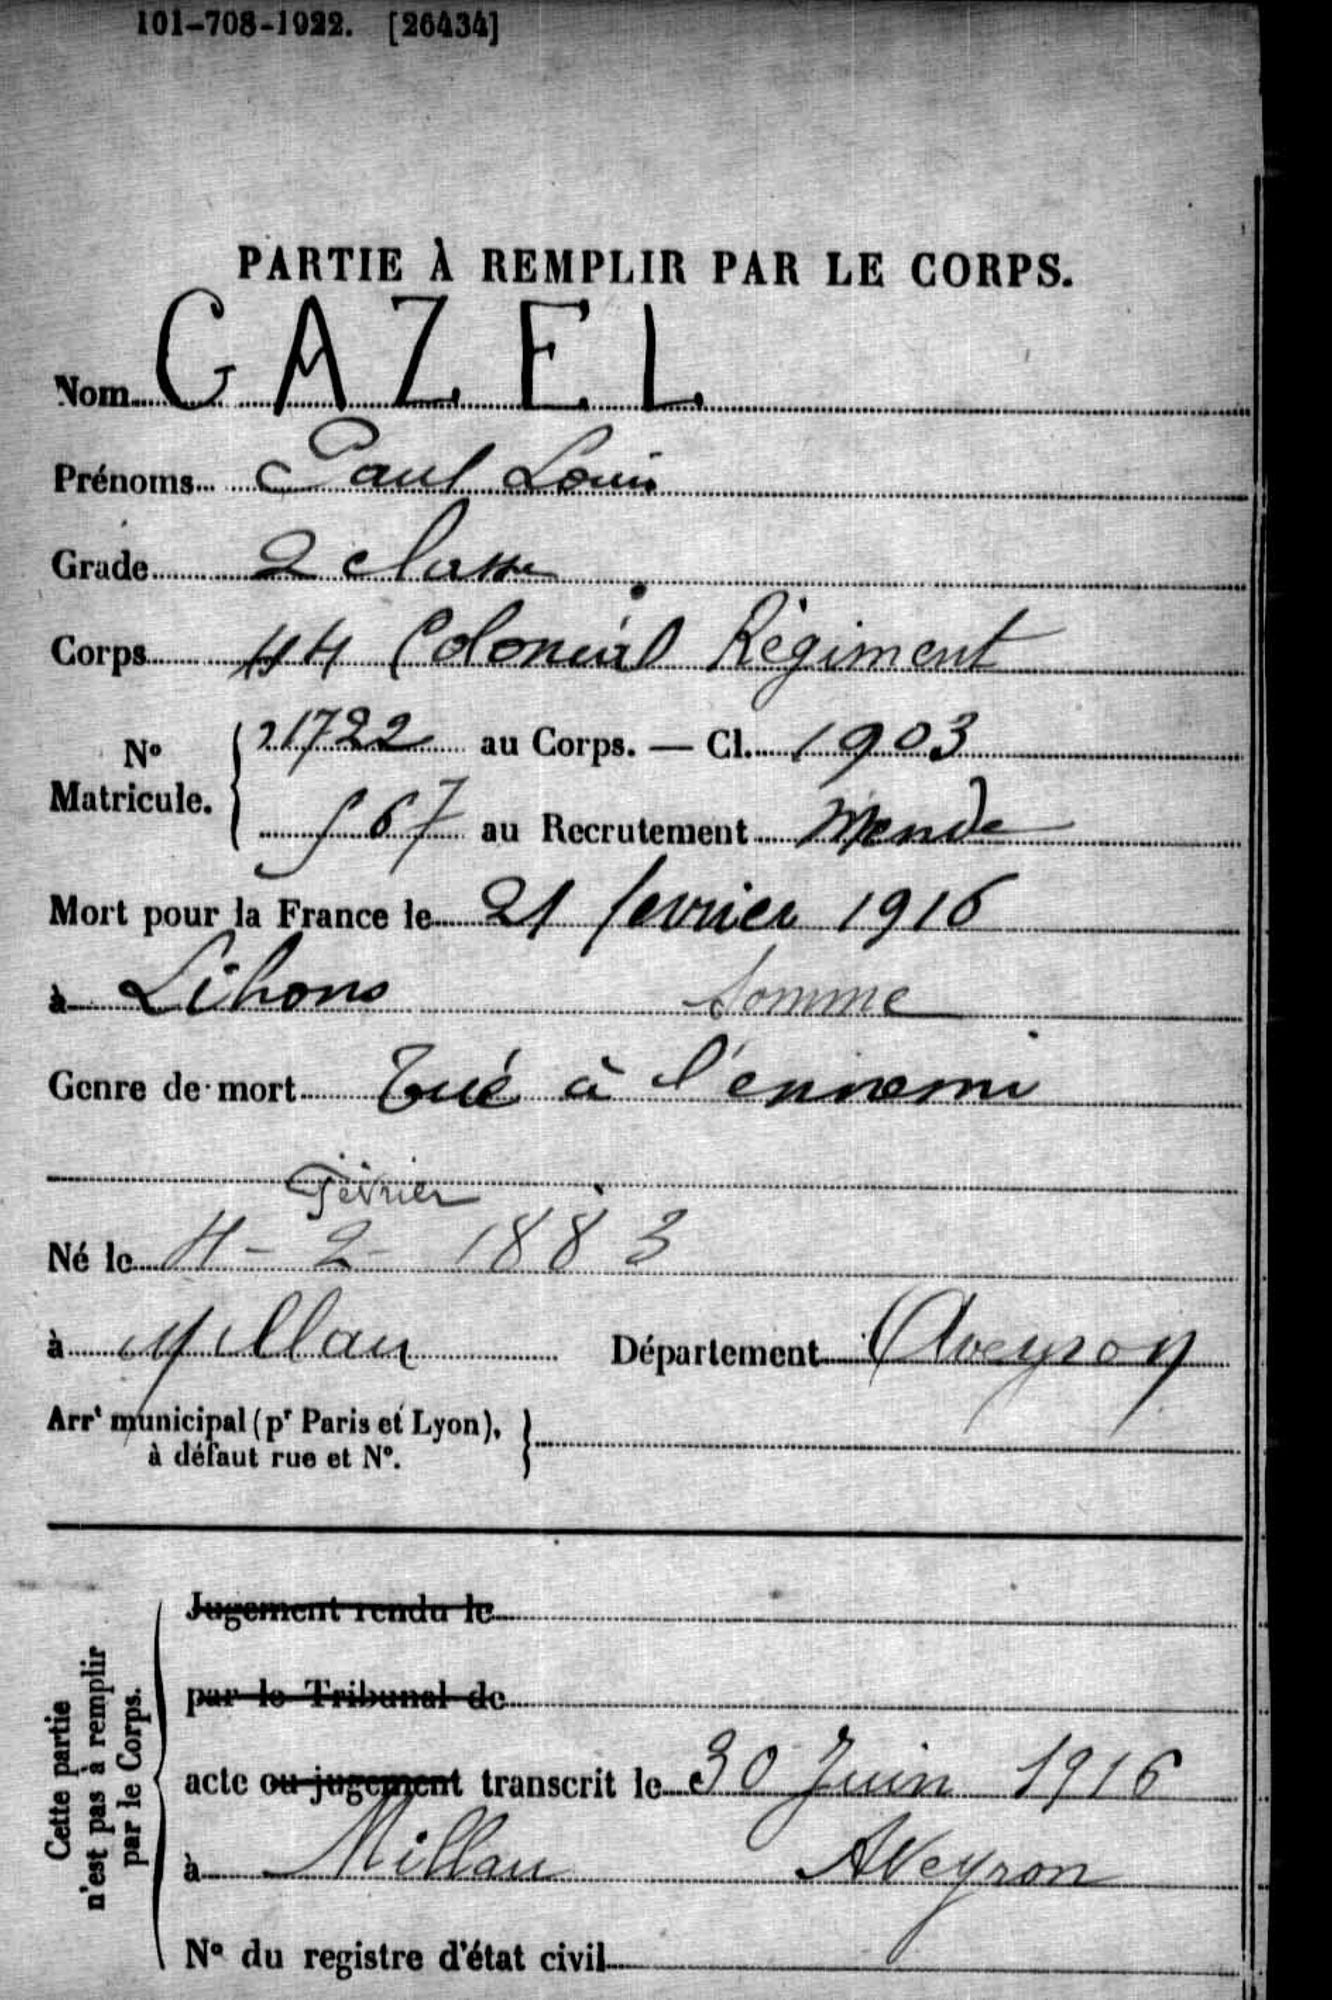 101-708-1922. [26434]
PARTIE À REMPLIR PAR LE CORPS.
Nom GAZEL
Prénoms Paul Louis
Grade 2 classe
Corps 44 Colonial Régiment
N° Matricule. 21722 au Corps. — Cl. 1903
567 au Recrutement Mende
Mort pour la France le 21 fevrier 1916
à Lihons Somme
Genre de mort Tué à l'ennemi
Février
Né le 4-2-1883
à Millau Département Aveyron
Arrt municipal (pr Paris et Lyon),
à défaut rue et N°.
Cette partie
n'est pas à remplir
par le Corps.
Jugement rendu le
par le Tribunal de
acte ou jugement transcrit le 30 Juin 1916
à Millau Aveyron
N° du registre d'état civil